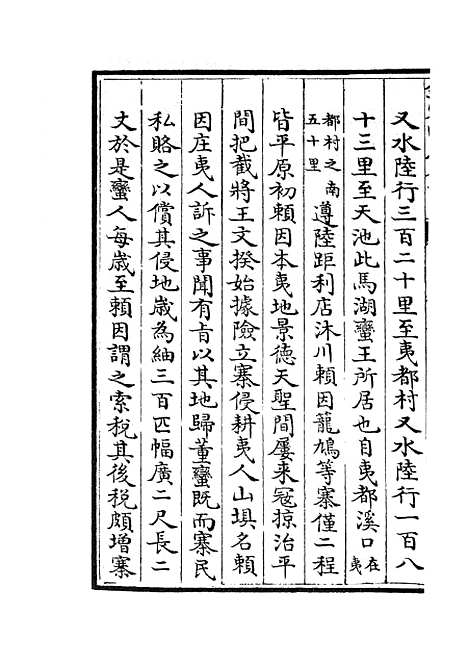 又水陸行三百二十里至夷都村又水陸行一百八
十三里至天池此馬湖蠻王所居也自夷都溪口在夷
都村之南五十里遵陸距利店沐川賴因籠鳩等寨僅二程
皆平原初賴因本夷地景德天聖間屢来冦掠治平
間把截將王文揆始據險立寨侵耕夷人山埧名賴
因庄夷人訴之事聞有㫖以其地歸董蠻既而寨民
私賂之以償其侵地歳為紬三百匹幅廣二尺長二
丈於是蠻人每歳至賴因謂之索税其後税頗增寨